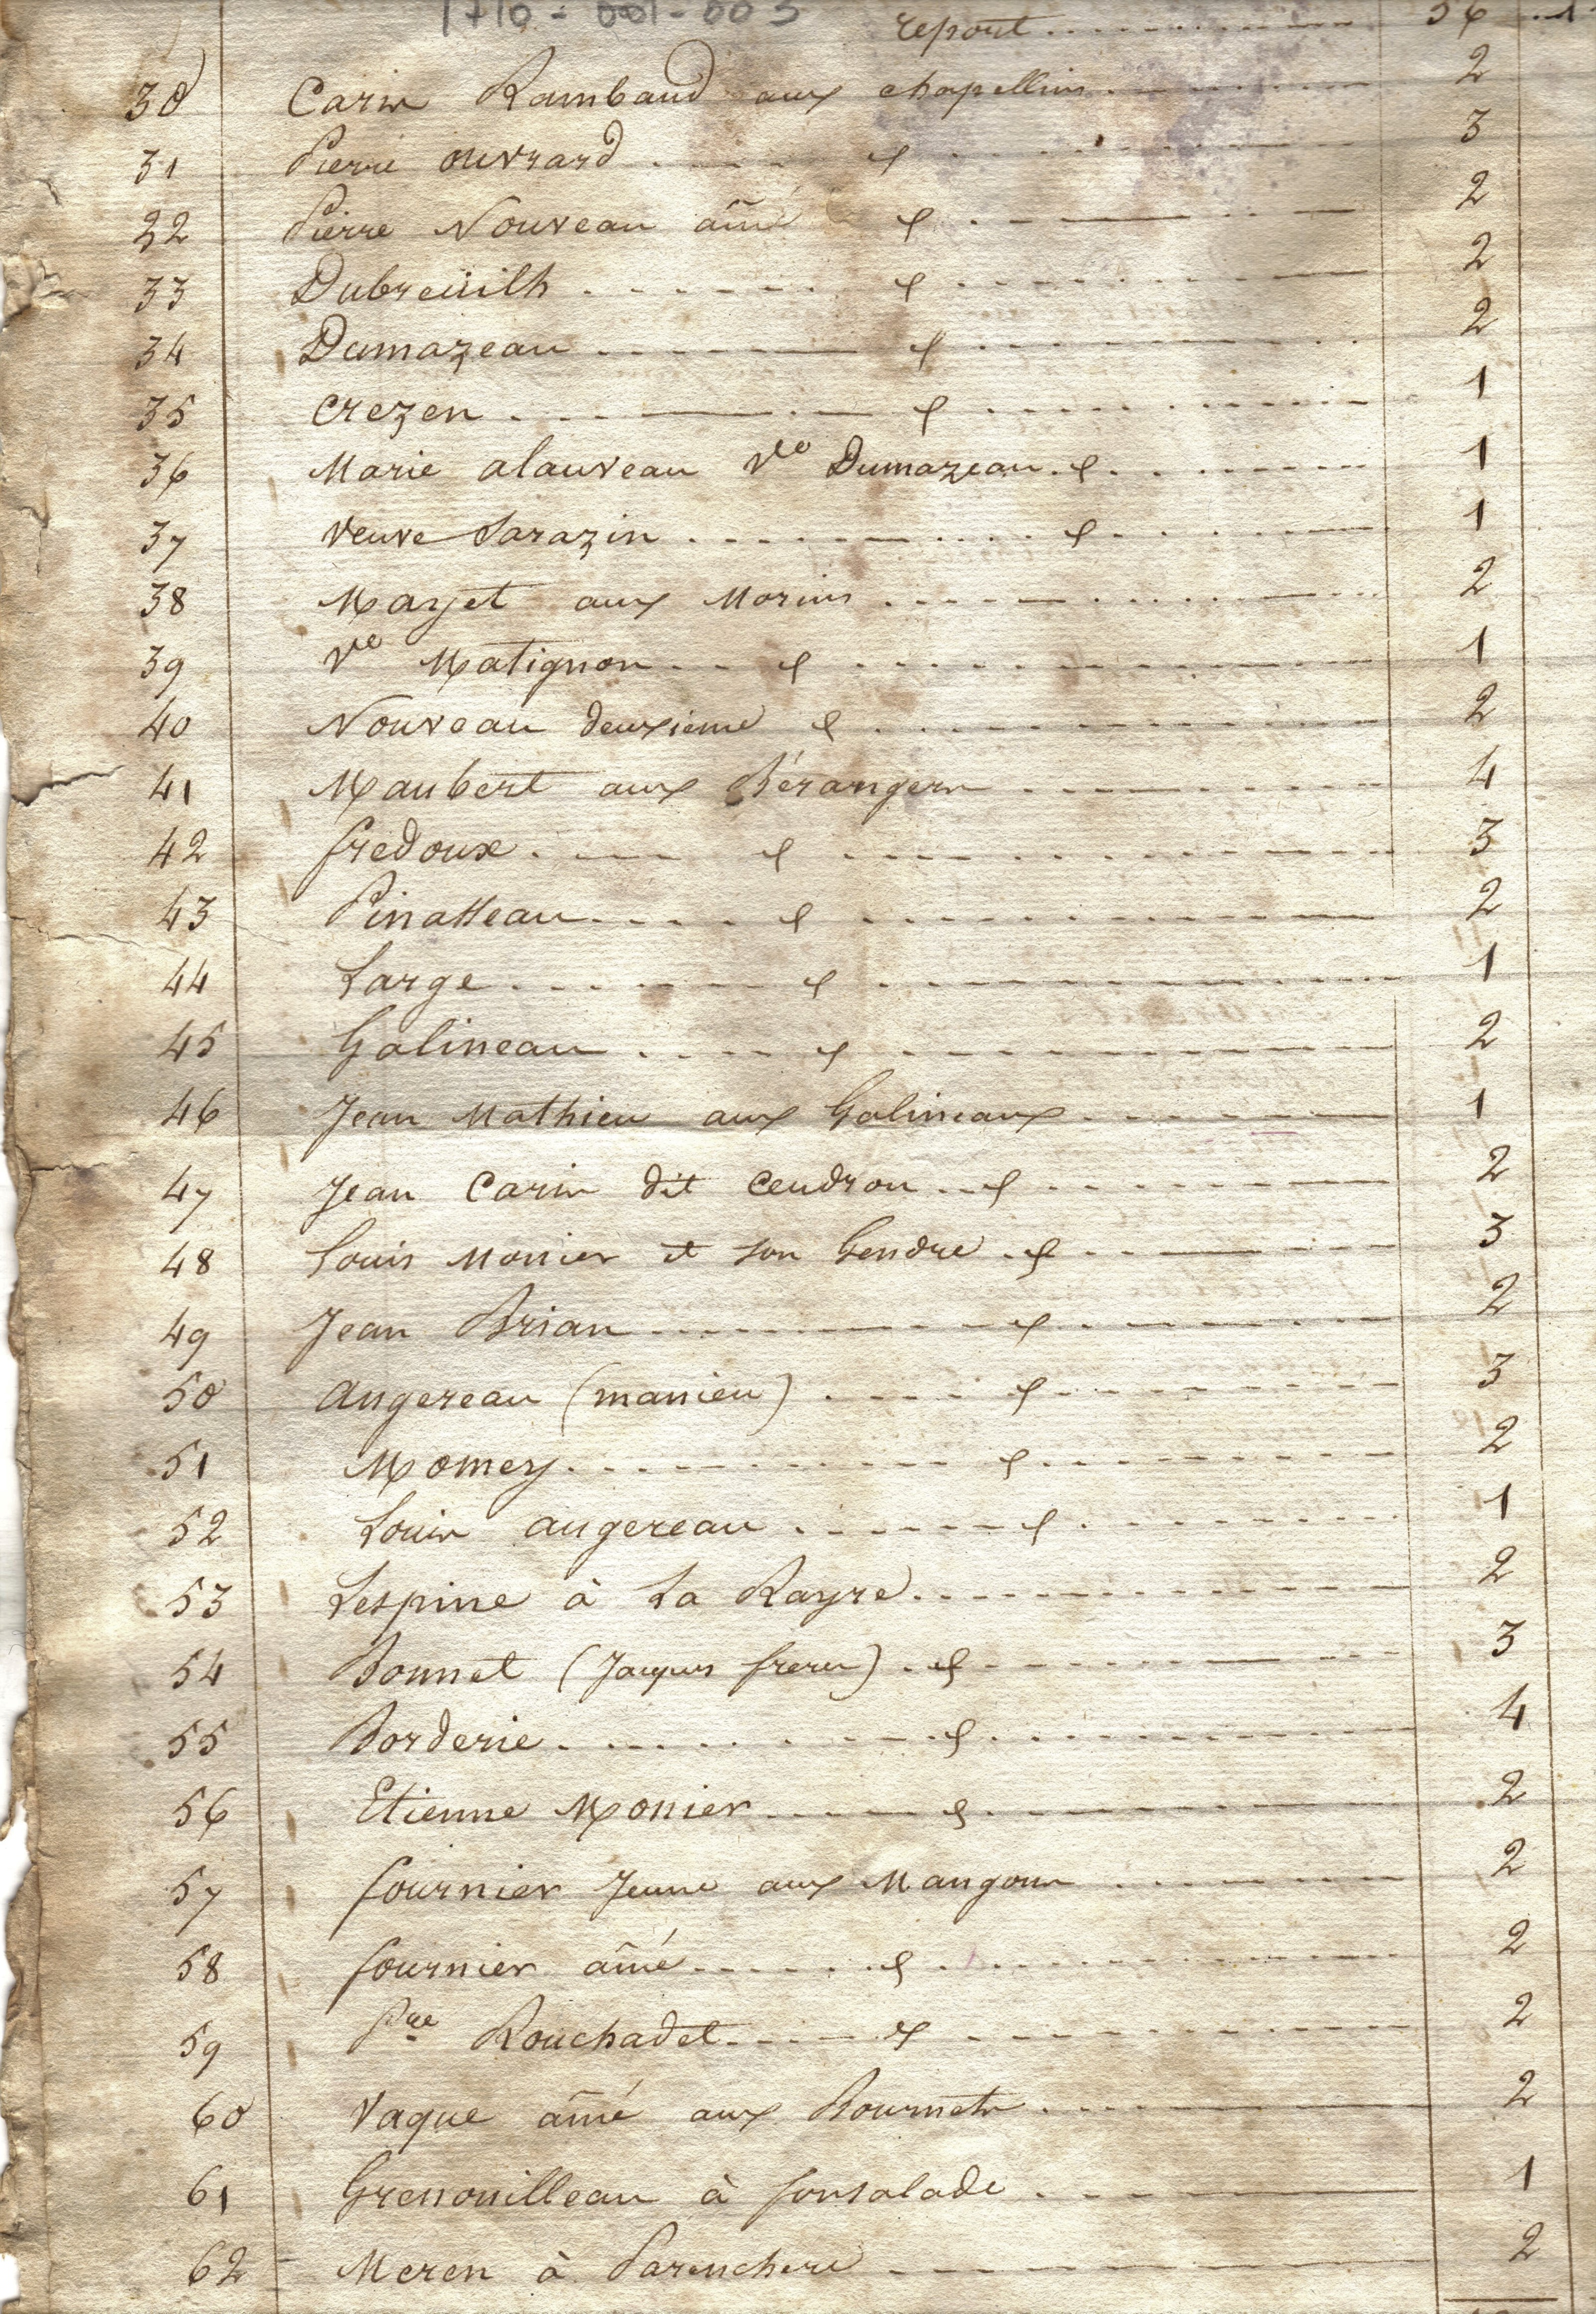 1710-001-003
report 56
30 Carin Rambaud aux chapellins 2
31 Pierre ouvrard d 3
32 Pierre Nouveau ainé d 2
33 Dubreüilh d 2
34 Dumazeau d 2
35 Crezen d 1
36 Marie alauveau Ve Dumazeau d 1
37 Veuve Sarazin d 1
38 Mayet aux Morins 2
39 Ve Matignon d 1
40 Nouveau deuxieme d 2
41 Maubert aux Bérangers 4
42 fredoux d 3
43 Pinatteau d 2
44 Large d 1
45 Galineau d 2
46 Jean Mathieu aux Galineaux 1
47 Jean Carin dit Cendron d 2
48 Louis Monier et son Gendre d 3
49 Jean Brian d 2
50 Angereau (manieu) d 3
51 Momey d 2
52 Louis angereau d 1
53 Lespine à La Rayre 2
54 Bonnet (Jacques freres) d 3
55 Borderie d 4
56 Etienne Monier d 2
57 fournier Jeune aux Mangons 2
58 fournier ainé d 2
59 Pre Rouchadet d 2
60 Vaque ainé aux Bournets 2
61 Grenouilleau à fonsalade 1
62 Meren à Parenchere 2